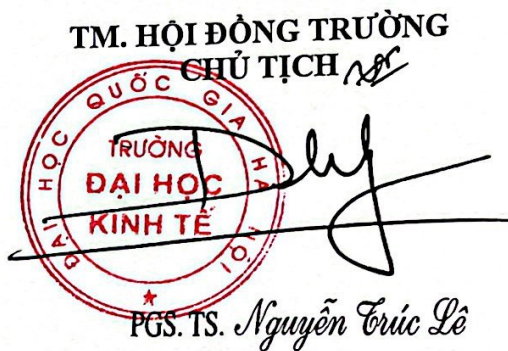 TM. HỘI ĐỒNG TRƯỜNG
CHỦ TỊCH
ĐẠI HỌC QUỐC GIA HÀ NỘI
TRƯỜNG
ĐẠI HỌC
KINH TẾ
PGS. TS. Nguyễn Trúc Lê